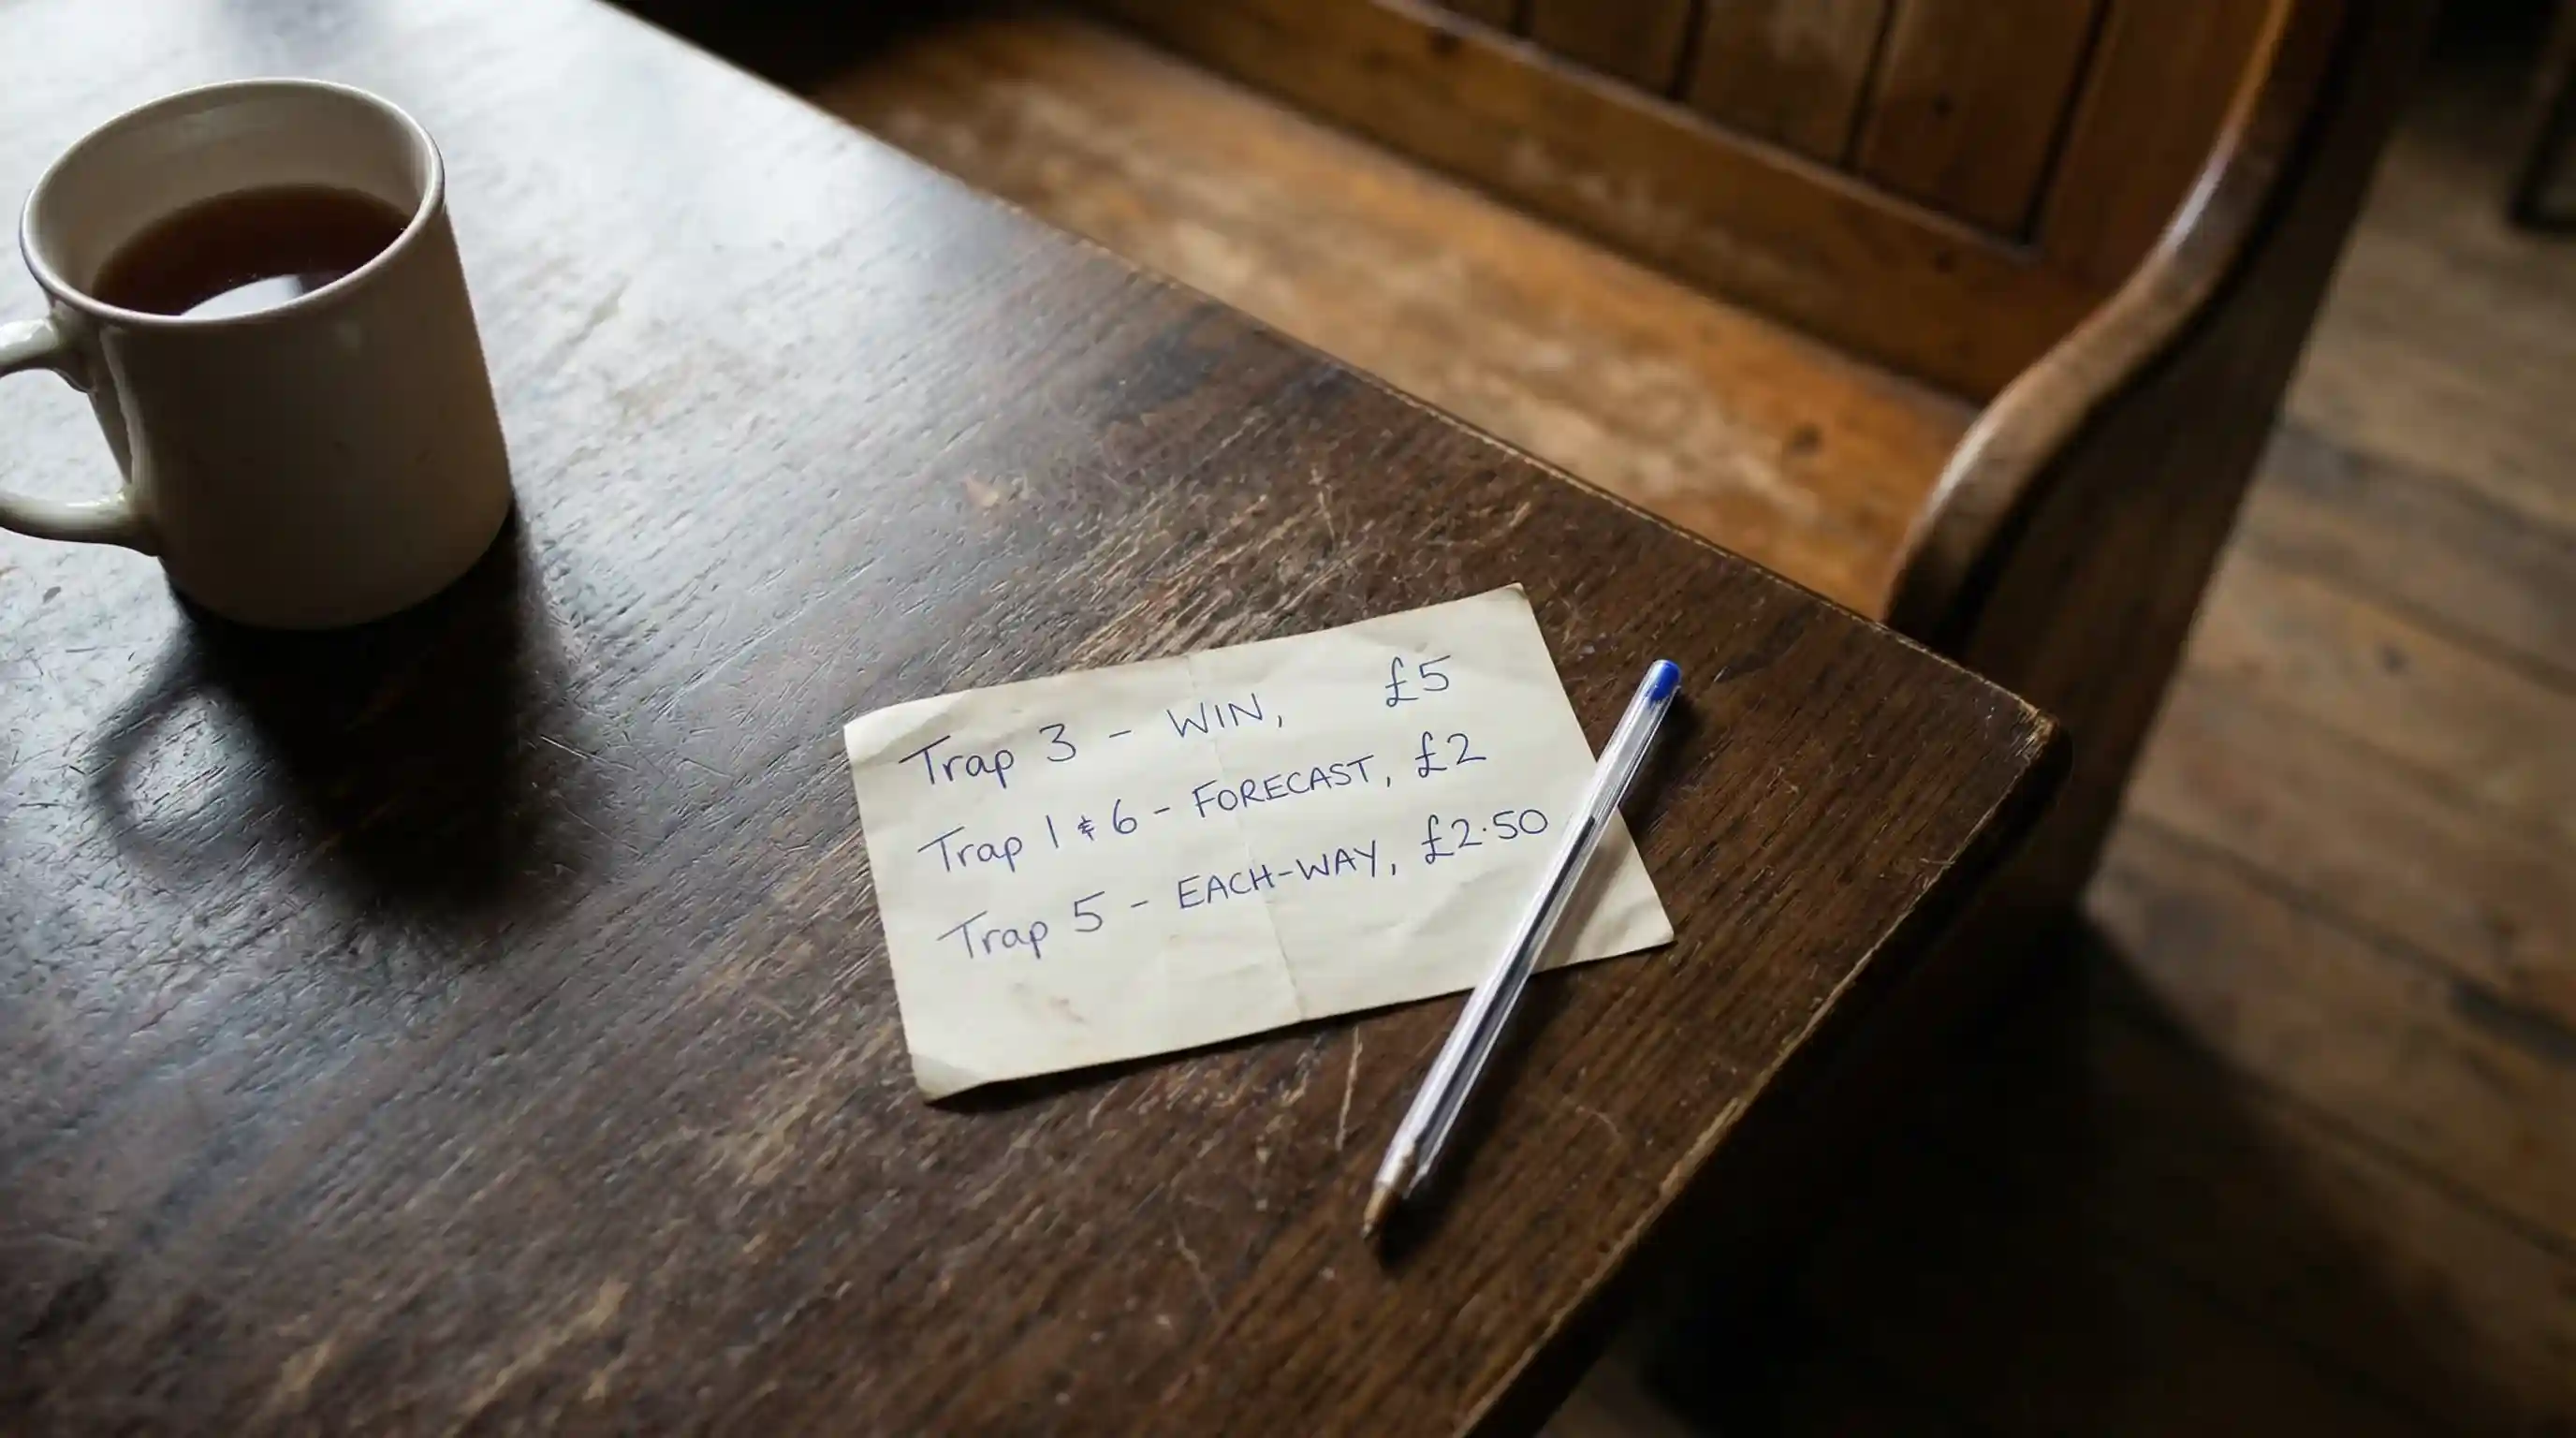 Trap 3 - WIN, £5
Trap 1 & 6 - FORECAST, £2
Trap 5 - EACH-WAY, £2·50